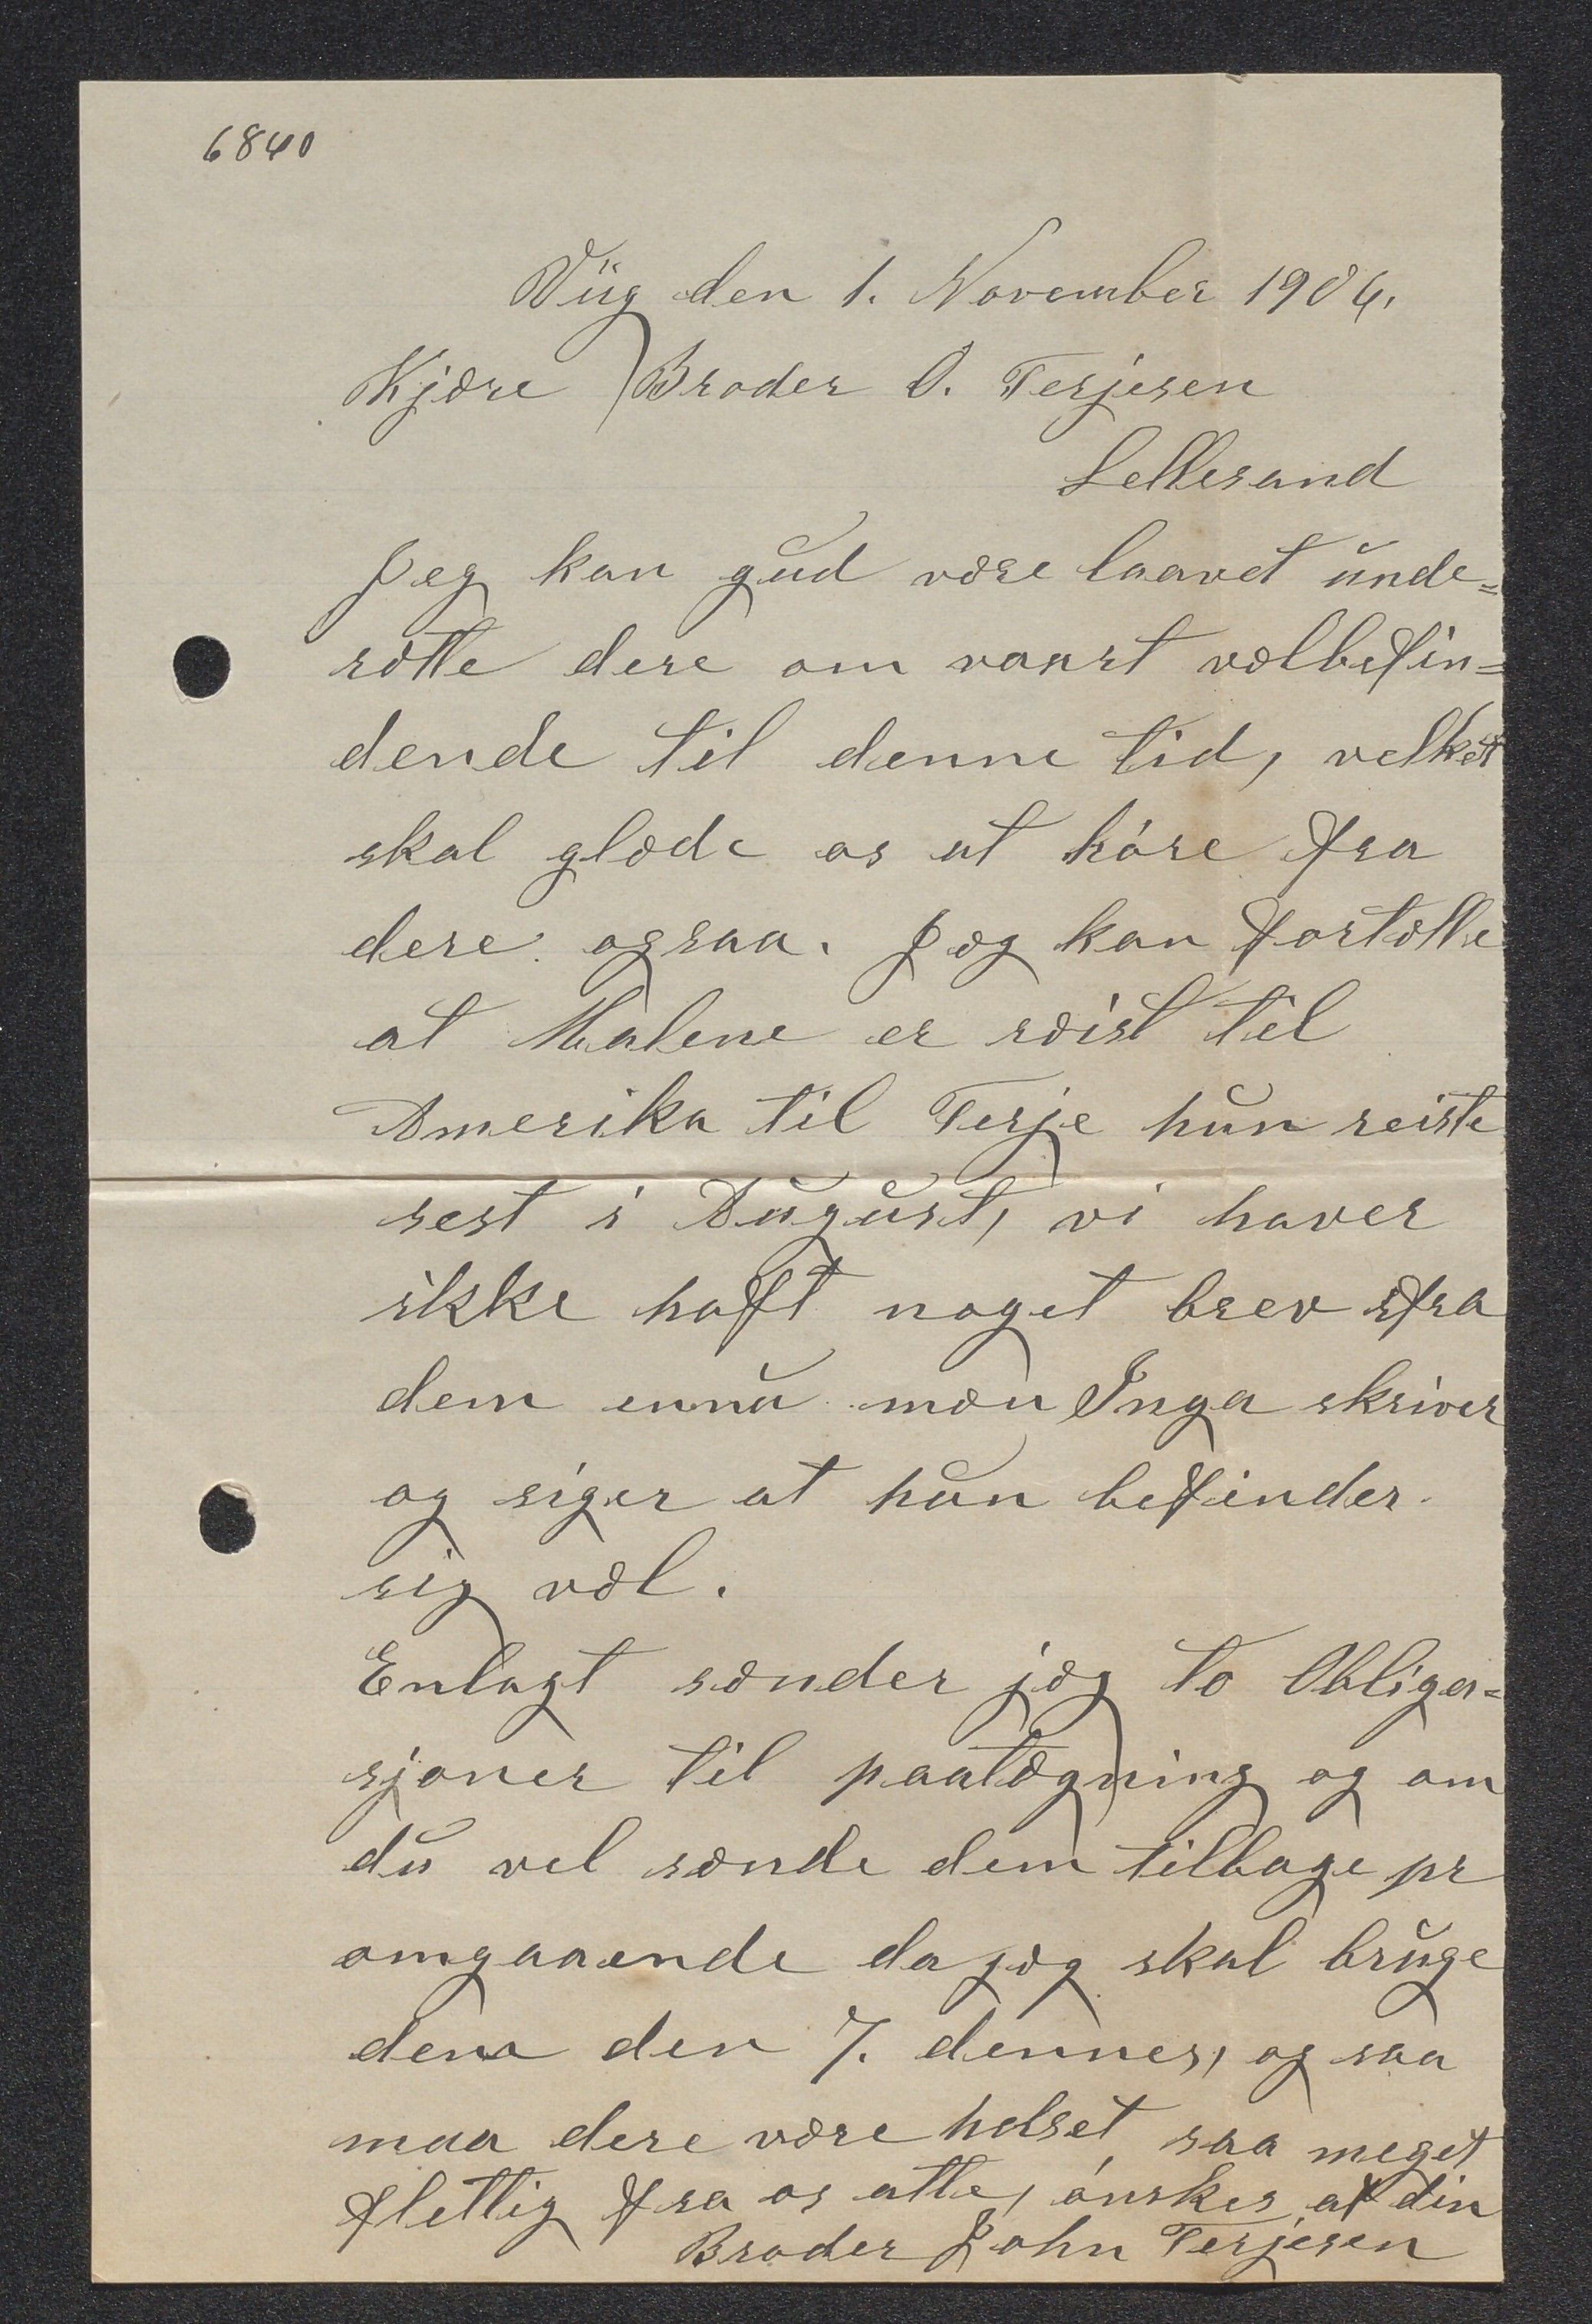 6840
Viig den 1. November 1904.
Kjære Broder O. Terjesen
Lellesand
Jeg kan gud være laavet unde=
rætte dere om vaart vælbefin=
dende til denne tid, velket
skal glæde os at høre fra
dere ogsaa. Jæg kan fortælle
at Malene er ræist til
Amerika til Terje hun reiste
sest i August, vi haver
ikke haft noget brev ifra
dem ennu mæn Inga skriver
og siger at hun befinder
sig væl.
Enlagt sænder jæg to Obliga=
sjoner til paatægning og om
du vel sænde dem tilbage pr
omgaaende da jæg skal bruge
dem den 7. dennes, og saa
maa dere være helset saa meget
flettig fra os alle, ønskes af din
Broder John Terjesen